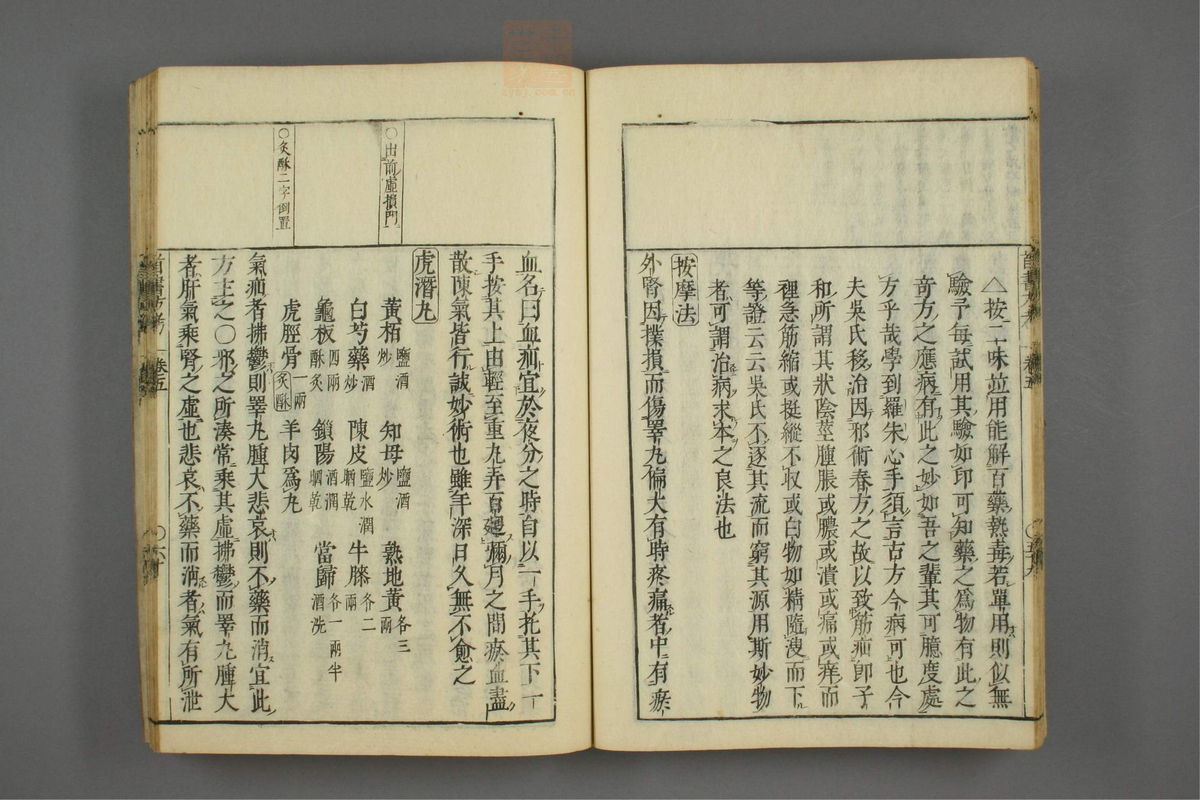 △按二味並用能解百藥熱毒若單用則似無
驗予每試用其驗如印可知藥之爲物有此之
奇方之應病有此之妙如吾之輩其可臆度處
方乎哉學到羅朱心手須言古方今病可也今
夫吳氏移治因邪術春方之故以致筋疝卽子
和所謂其狀陰莖腫脹或膿或潰或痛或痒而
裡急筋縮或挺縱不収或白物如精隨溲而下
等證云云吳氏不逐其流而窮其源用斯妙物
者可謂治病求本之良法也
按摩法
外腎因撲損而傷睪丸偏大有時疼痛者中有瘀
血名曰血疝宜於夜分之時自以一手托其下一
手按其上由輕至重丸弄百廻彌月之間瘀血盡
散陳氣皆行誠妙術也雖年深日久無不愈之
○出前虛損門
虎潛丸
黃栢鹽酒炒 知母鹽酒炒 熟地黃各三兩
白芍藥酒炒 陳皮鹽水潤晒乾 牛膝各二兩
龜板四兩酥炙 鎖陽酒潤晒乾 當歸各一兩半酒洗
虎脛骨一兩炙酥 羊肉爲丸
○炙酥二字倒置
氣疝者拂鬱則睪丸腫大悲哀則不藥而消宜此
方主之○邪之所湊常乘其虛拂鬱而睪丸腫大
者肝氣乘腎之虛也悲哀不藥而消者氣有所泄
卷五
○五十九
卷五
○六十